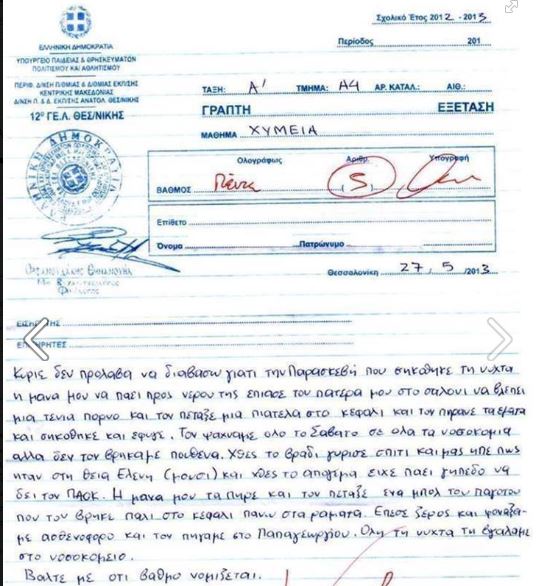 Σχολικό Έτος 2012 - 2013
Περίοδος 201
ΕΛΛΗΝΙΚΗ ΔΗΜΟΚΡΑΤΙΑ
ΥΠΟΥΡΓΕΙΟ ΠΑΙΔΕΙΑΣ & ΘΡΗΣΚΕΥΜΑΤΩΝ
ΠΟΛΙΤΙΣΜΟΥ ΚΑΙ ΑΘΛΗΤΙΣΜΟΥ
ΠΕΡΙΦ. Δ/ΝΣΗ Π/ΘΜΙΑΣ & Δ/ΘΜΙΑΣ ΕΚΠ/ΣΗΣ
ΚΕΝΤΡΙΚΗΣ ΜΑΚΕΔΟΝΙΑΣ
Δ/ΝΣΗ Π. & Δ. ΕΚΠ/ΣΗΣ ΑΝΑΤΟΛ. ΘΕΣ/ΝΙΚΗΣ
12º ΓΕ.Λ. ΘΕΣ/ΝΙΚΗΣ
ΤΑΞΗ: Α' ΤΜΗΜΑ: Α4 ΑΡ. ΚΑΤΑΛ.: ΑΙΘ.:
ΓΡΑΠΤΗ ΕΞΕΤΑΣΗ
ΜΑΘΗΜΑ ΧΥΜΕΙΑ
Ολογράφως Αριθμ. Υπογραφή
ΒΑΘΜΟΣ Πέντε (5)
Επίθετο
Όνομα Πατρώνυμο
Θεσσαλονίκη 27, 5 /2013
ΕΙΣΗΓΗΤΗΣ
ΕΠΙΤΗΡΗΤΕΣ
Κυριε δεν προλαβα να διαβασω γιατι την Παρασκεβή που σηκοθηκε τη νυχτα
η μανα μου να παει προς νερου της επιασε τον πατερα μου στο σαλονι να βλεπει
μια τενια πορνο και τον πεταξε μια πιατελα στο κεφαλι και τον πηρανε τα εματα
και σηκοθηκε και εφυγε. Τον ψαχναμε ολο το Σαβατο σε ολα τα νοσοκομια
αλλα δεν τον βρηκαμε πουθενα. Χθες το βραδι γυρισε σπιτι και μας ηπε πως
ηταν στη θεια Ελενη (μουσι) και χθες το απογεμα ειχε παει γηπεδο να
δει τον ΠΑΟΚ. Η μανα μου τα πηρε και τον πεταξε ενα μπολ του παγοτου
που τον βρηκε παλι στο κεφαλι πανω στα ραματα. Επεσε ξερος και φοναξα-
με ασθενοφορο και τον πηγαμε στο Παπαγεωργιου. Ολη τη νυχτα τη βγαλαμε
στο νοσοκομειο.
Βαλτε με οτι βαθμο νομιζεται.